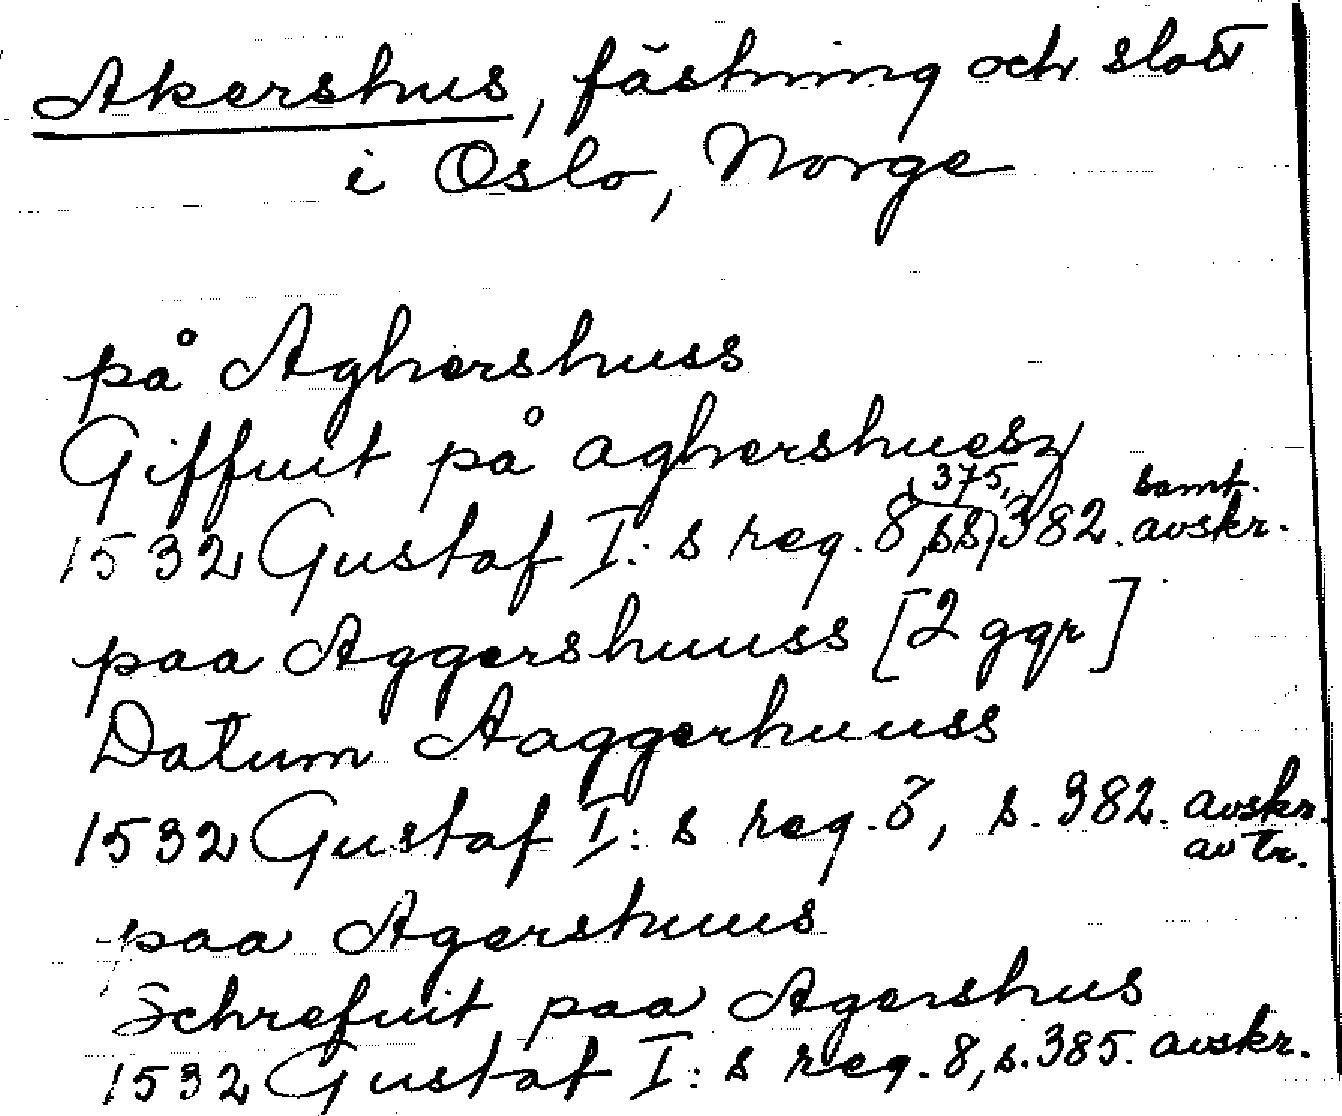 Akershus, fästning och slott
i Oslo, Norge
på Aghershuss
Giffuit på aghershuesz
1532 Gustaf I:s reg. 8, ss. 375, 382. samt. avskr.
paa Aggershuuss [2 ggr]
Datum Aaggerhuuss
1532 Gustaf I:s reg. 8, s. 382. avskr. av tr.
paa Agershuus
Schrefuit paa Agershus
1532 Gustaf I:s reg. 8, s. 385. avskr.